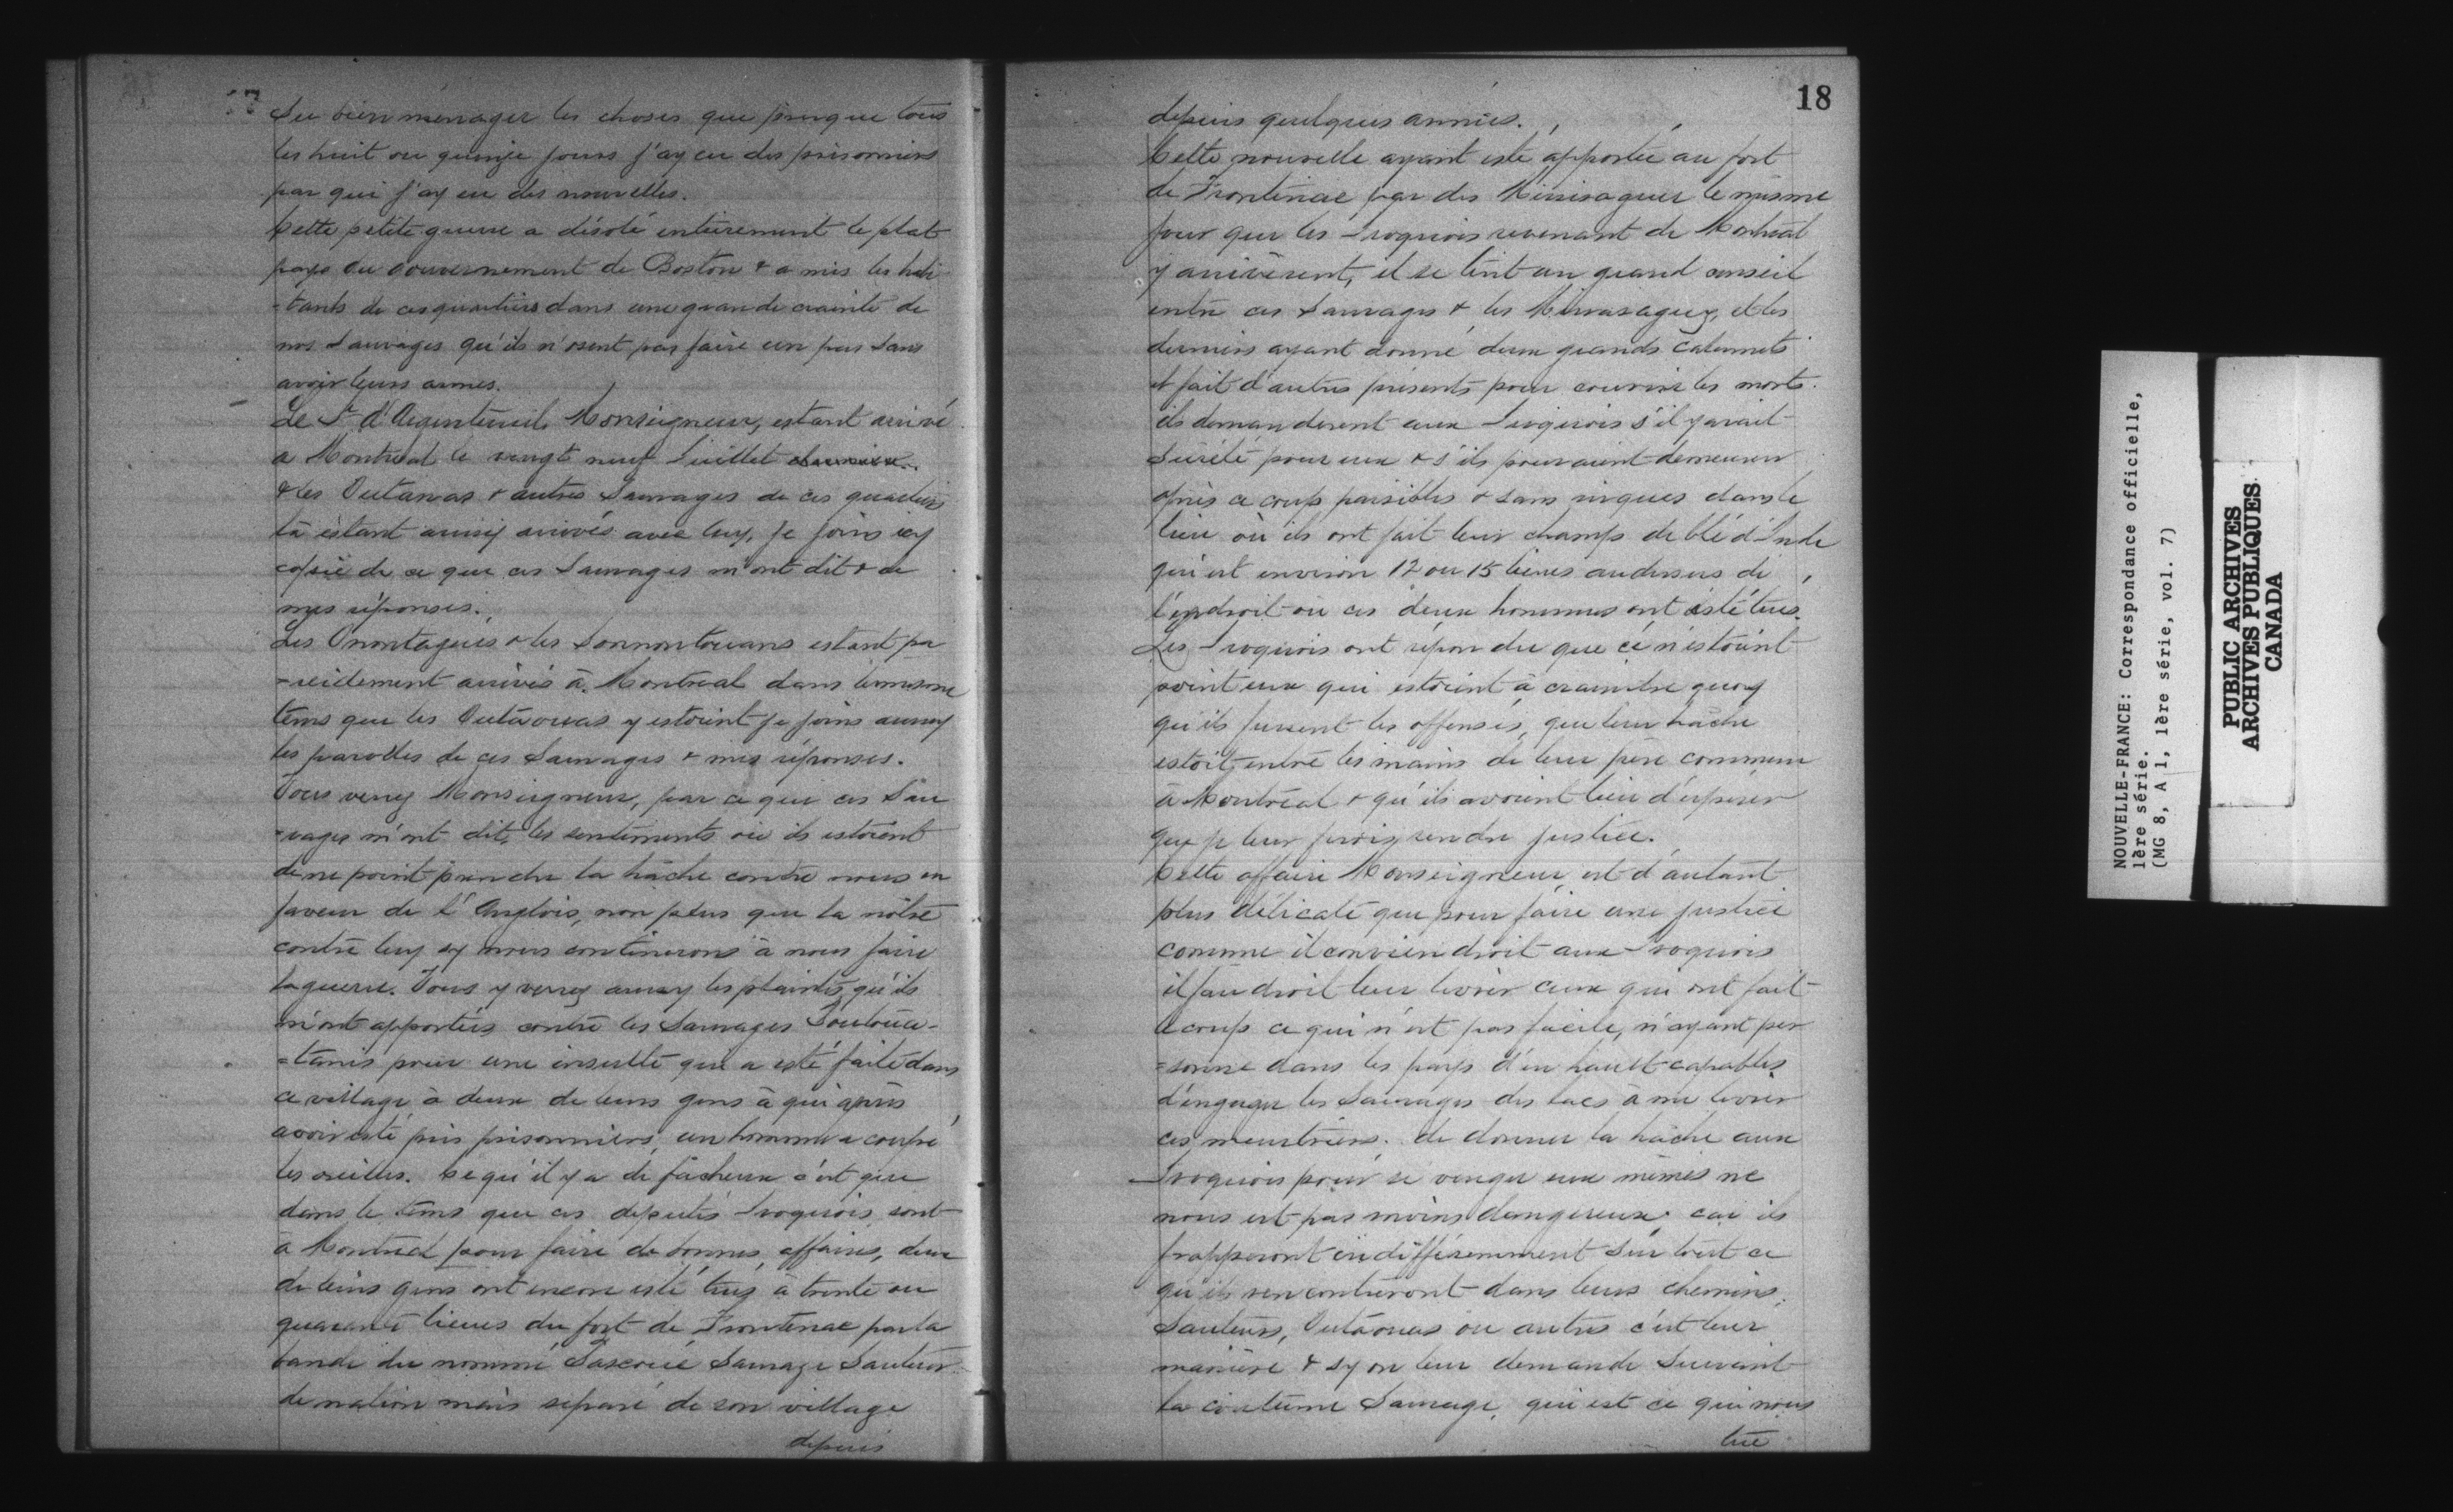 17
Sçu bien ménager les choses que presque tous
les huit ou quinze jours j'ay eu des prisonniers
par qui j'ay eu des nouvelles.
Cette petite guerre a désolé entièrement le plat
pays du Gouvernement de Boston & a mis les habi
-tants de ces quartiers dans une grande crainte de
nos Sauvages qu'ils n'osent pas faire un pas sans
avoir leurs armes.
Le Sr d'Argenteuil, Monseigneur, estant arrivé
à Montréal le vingt neuf Juillet dernier
& les Outaouas & autres Sauvages de ces quartiers
là estant aussy arrivés avec luy, je joins icy
copie de ce que ces Sauvages m'ont dit & de
mes réponses.
Les Onontagués & les Sonnontouans estant pa
-reillement arrivés à Montréal dans le mesme
tems que les Outaouas y estoient je joins aussy
les parolles de ces Sauvages & mes réponses.
Vous verrez Monseigneur, par ce que ces Sau
-vages m'ont dit, les sentiments où ils estoient
de ne point prendre la hâche contre nous en
faveur de l'Anglois, non plus que la nôtre
contre luy sy nous continuons à nous faire
la guerre. Vous y verrez aussy les plaintes qu'ils
m'ont apportées contre les Sauvages Poutoua-
=tamis pour une insulte qui a esté faite dans
ce village à deux de leurs gens à qui après
avoir esté pris prisonniers, un homme a coupé
les oreilles. Ce qu'il y a de fâcheux c'est que
dans le tems que ces députés Iroquois sont
à Montréal pour faire de bonnes affaires, deux
de leurs gens ont encore esté tués à trente ou
quarante lieues du fort de Frontenac par la
bande du nommé Sauvage Sauteur
de nation mais séparé de son village
depuis
18
depuis quelques années.
Cette nouvelle ayant esté apportée au fort
de Frontenac par des Missisaguez le mesme
jour que les Iroquois revenant de Montréal
y arrivèrent, il se tint un grand conseil
entre ces Sauvages & les Missisaguez, et les
derniers ayant donné deux grands calumets
et fait d'autres présents pour couvrir les morts
ils demandèrent aux Iroquois s'il y avait
Sûreté pour eux & s'ils pouvaient demeurer
après ce coup paisibles & sans risques dans le
lieu où ils ont fait leur champs de blé d'Inde
qui est environ 12 ou 15 lieues audessus de
l'endroit où ces deux hommes ont esté tués.
Les Iroquois ont répondu que ce n'estoient
point eux qui estoient à craindre quoy
qu'ils fussent les offensés, que leur hâche
estoit entre les mains de leur père commun
à Montréal & qu'ils avoient lieu d'espérer
que je leur ferois rendre justice.
Cette affaire Monseigneur est d'autant
plus délicate que pour faire une justice
comme il conviendroit aux Iroquois
il faudroit leur livrer ceux qui ont fait
le coup ce qui n'est pas facile, n'ayant per
=sonne dans les pays d'en hault capables
d'engager les Sauvages des lacs à me livrer
ces meurtriers. de donner la hâche aux
Iroquois pour se venger eux mêmes ne
nous est pas moins dangereux, car ils
frapperont indifféremment sur tout ce
qu'ils rencontreront dans leurs chemins,
Sauteurs, Outaouas ou autres c'est leur
manière & sy on leur demande Suivant
la coutume Sauvage, qui est ce qui nous
tue
NOUVELLE-FRANCE: Correspondance officielle,
1ère série.
(MG 8, A 1, 1ère série, vol. 7)
PUBLIC ARCHIVES
ARCHIVES PUBLIQUES
CANADA